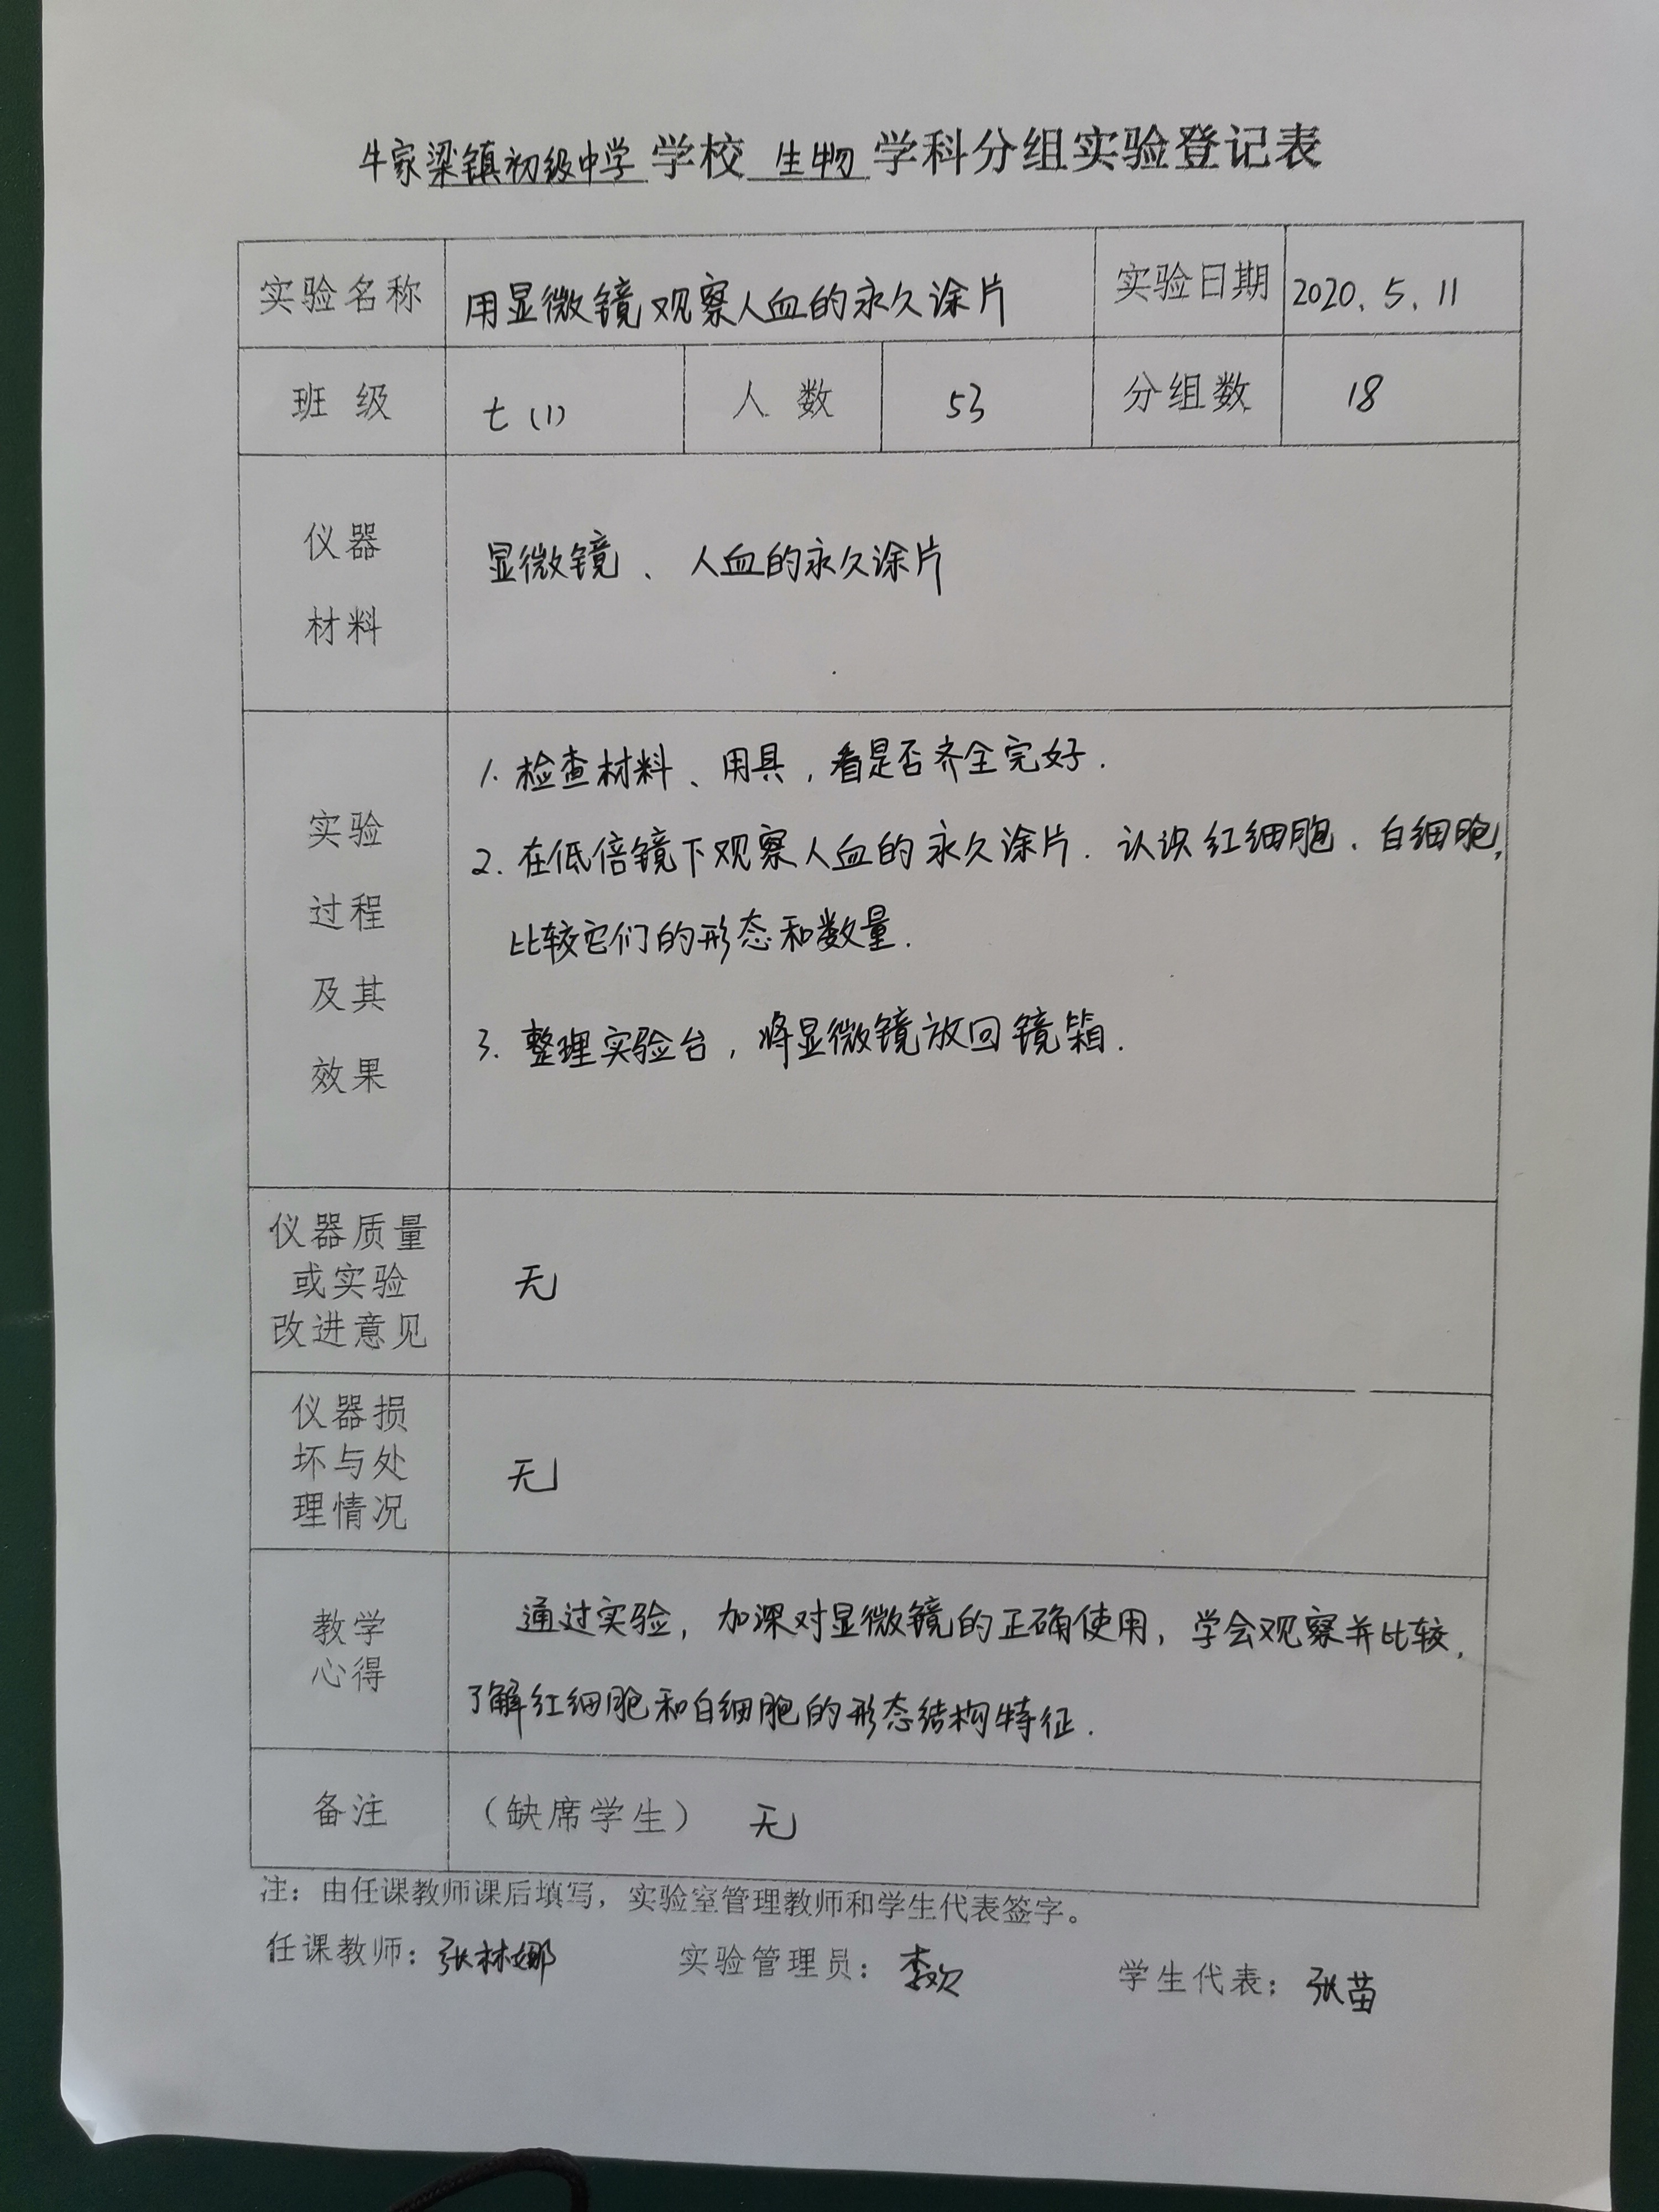 牛家梁镇初级中学 学校 生物 学科分组实验登记表
实验名称 用显微镜观察人血的永久涂片 实验日期 2020.5.11
班 级 七(1) 人 数 53 分组数 18
仪器
材料
显微镜、人血的永久涂片
实验
过程
及其
效果
1. 检查材料、用具,看是否齐全完好.
2. 在低倍镜下观察人血的永久涂片.认识红细胞、白细胞,
比较它们的形态和数量.
3. 整理实验台,将显微镜放回镜箱.
仪器质量
或实验
改进意见
无
仪器损
坏与处
理情况
无
教学
心得
通过实验,加深对显微镜的正确使用,学会观察并比较,
了解红细胞和白细胞的形态结构特征.
备注 (缺席学生) 无
注:由任课教师课后填写,实验室管理教师和学生代表签字。
任课教师:张林娜 实验管理员:李欢 学生代表:张苗